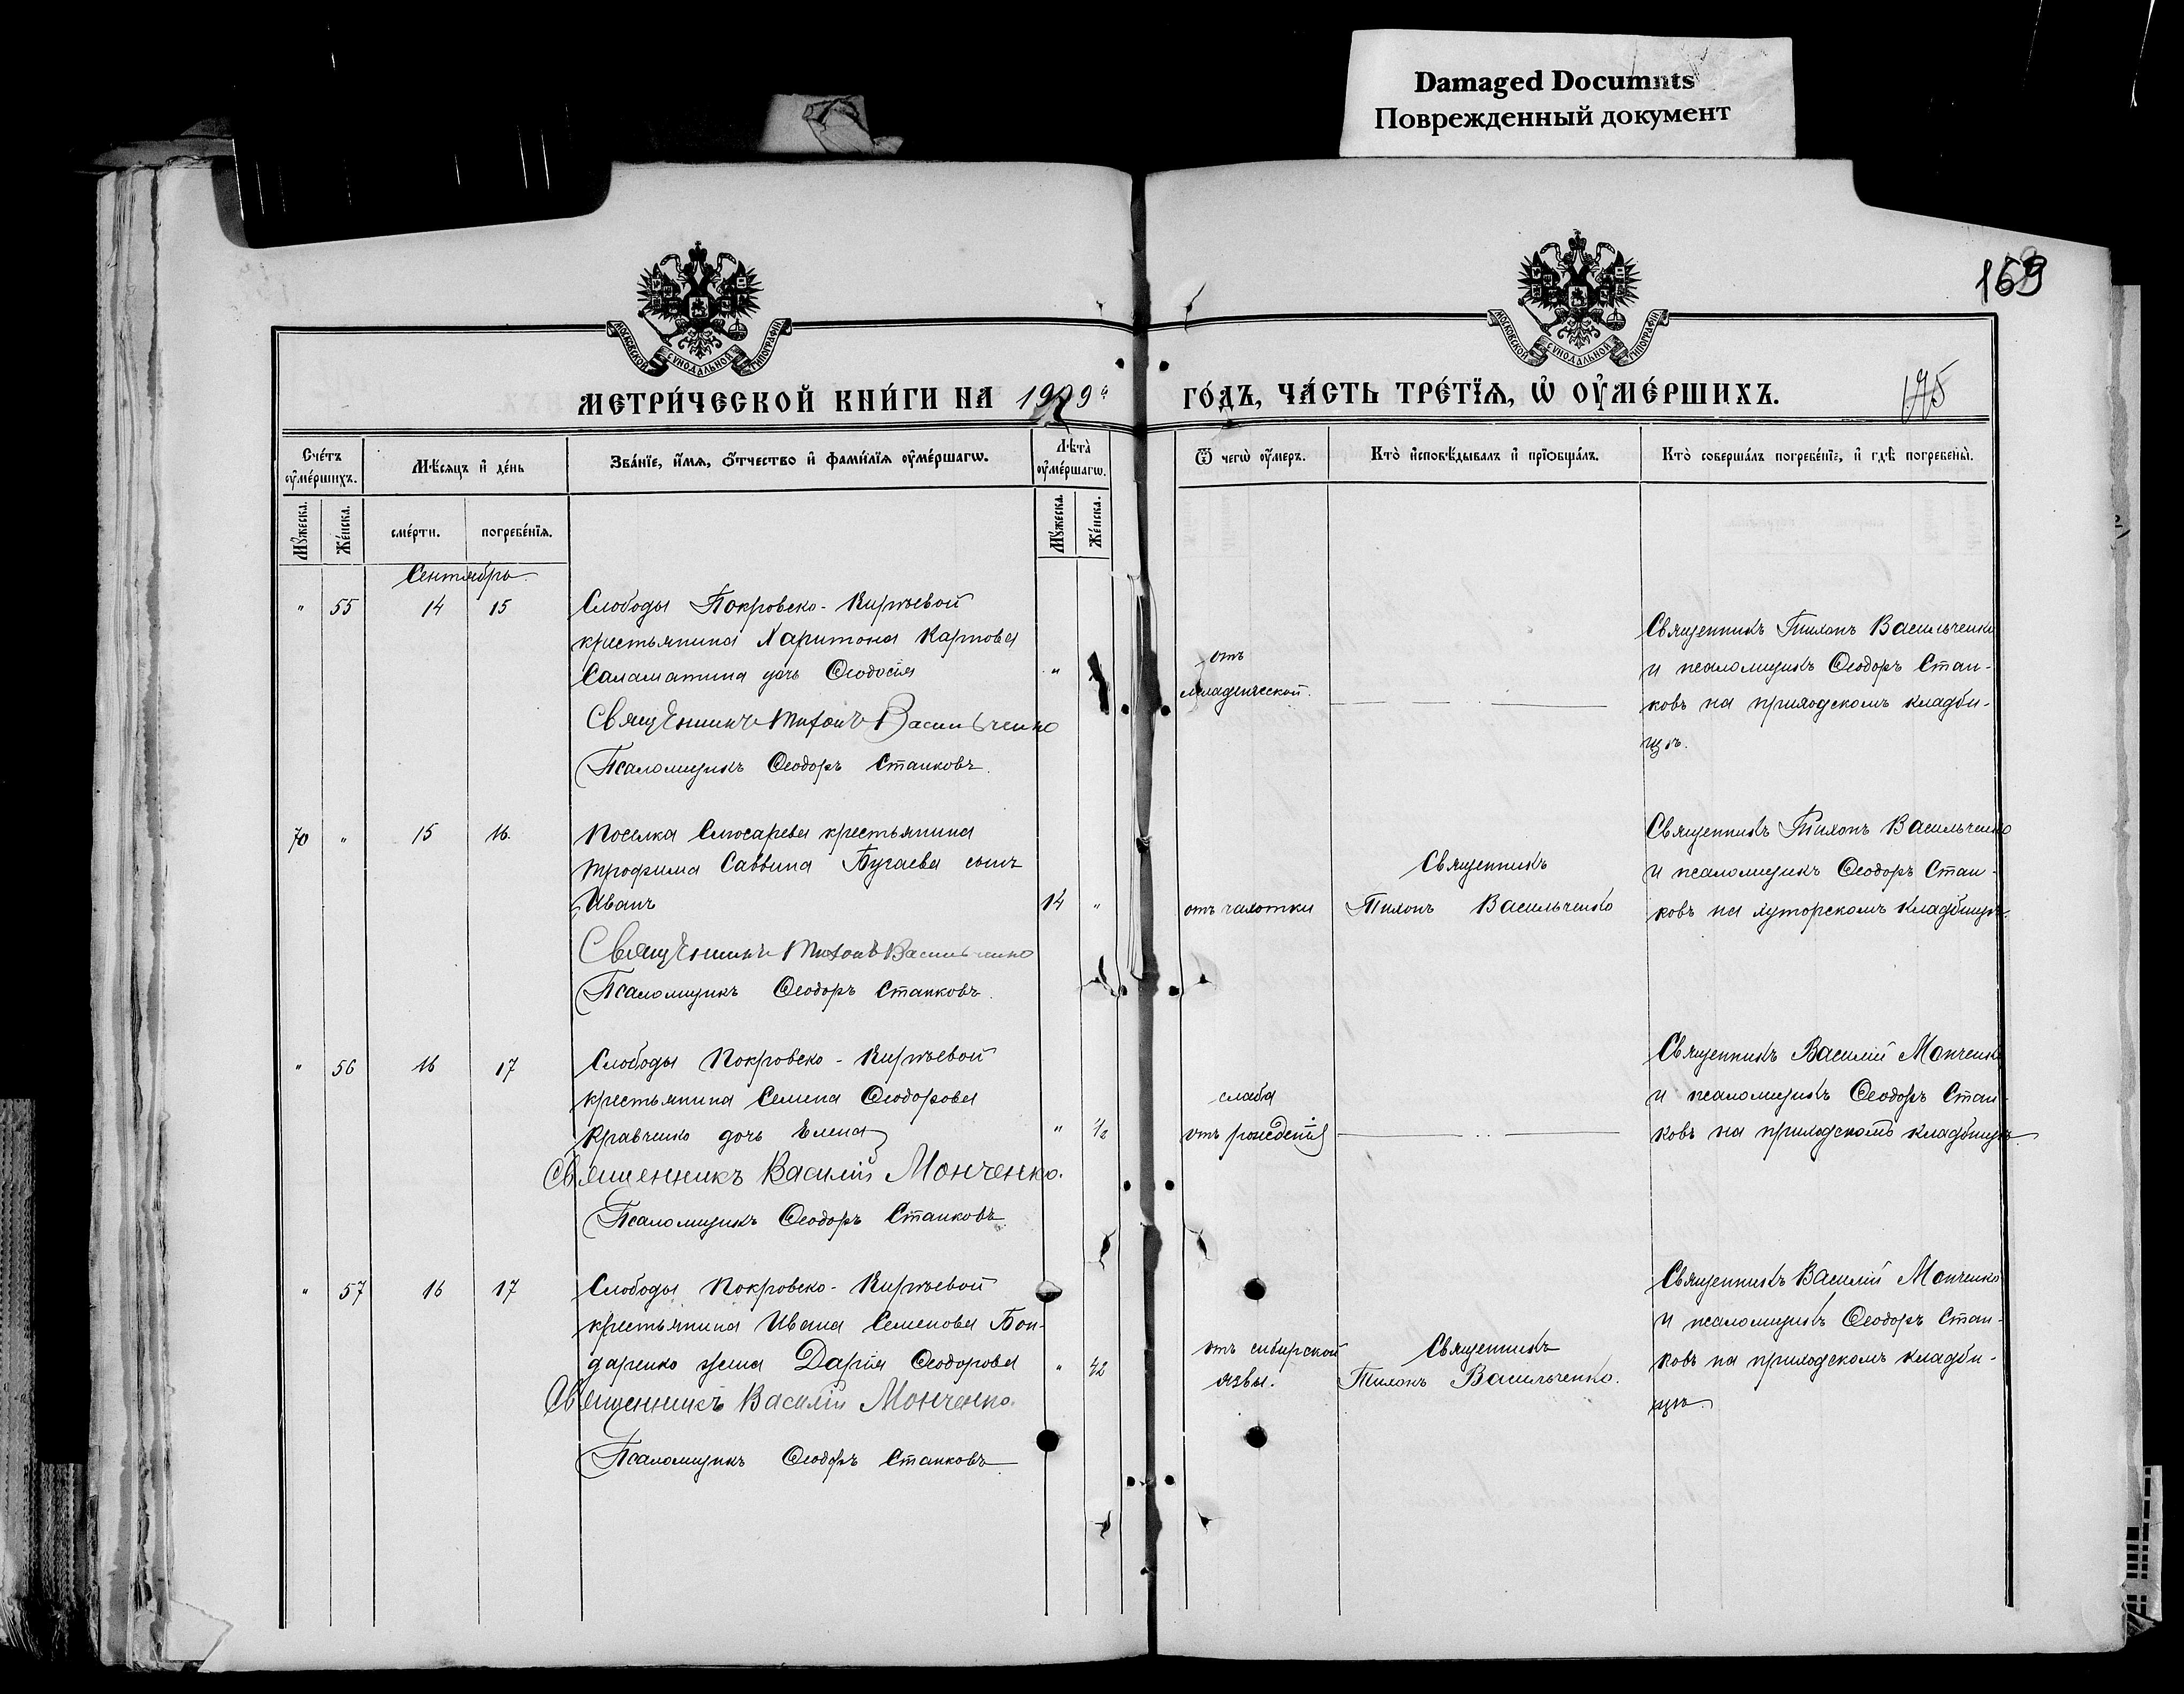 Damaged Documnts
Поврежденный документ
169
МОСКОВСКОЙ СѴНОДАЛЬНОЙ ТИПОГРАФІИ
МОСКОВСКОЙ СѴНОДАЛЬНОЙ ТИПОГРАФІИ
МЕТРИ́ЧЕСКОЙ КНИ́ГИ НА 1909 ГО́ДЪ, ЧА́СТЬ ТРЕ́ТЇѦ, Ѡ҆ ОУ҆МЕ́РШИХЪ.
195
Сче́тъ оу҆ме́ршихъ.
Мѣ́сяцъ и҆ де́нь
Зва́нїе, и҆́мѧ, ѻ҆́тчество и҆ фами́лїѧ оу҆ме́ршагѡ.
Лѣта̀ оу҆ме́ршагѡ.
Ѿ чегѡ̀ оу҆́меръ.
Кто̀ и҆сповѣ́дывалъ и҆ прїѡбща́лъ.
Кто̀ соверша́лъ погребе́нїе, и҆ гдѣ̀ погребены̀.
Мꙋ́жеска.
Же́нска.
сме́рти.
погребе́нїѧ.
Мꙋ́жеска.
Же́нска.
Сентябрь.
" 55 14 15
Слободы Покровско-Кирѣевой
крестьянина Харитона Карпова
Саламатина дочь Ѳеодосія "
Священникъ Тихонъ Васильченко
Псаломщикъ Ѳеодоръ Станковъ.
отъ
младенческой.
Священникъ Тихонъ Васильченко
и псаломщикъ Ѳеодоръ Стан-
ковъ на приходскомъ кладби-
щѣ.
70 " 15 16.
Поселка Слюсарева крестьянина
Трофима Саввина Бугаева сынъ
Иванъ 14 "
Священникъ Тихонъ Васильченко
Псаломщикъ Ѳеодоръ Станковъ.
отъ чахотки
Священникъ
Тихонъ Васильченко
Священникъ Тихонъ Васильченко
и псаломщикъ Ѳеодоръ Стан-
ковъ на хуторскомъ кладбищѣ.
" 56 16 17
Слободы Покровско-Кирѣевой
крестьянина Семена Ѳеодорова
Кравченко дочь Елена " 1/2
Священникъ Василій Монченко.
Псаломщикъ Ѳеодоръ Станковъ.
слаба
отъ рожденія
Священникъ Василій Монченко
и псаломщикъ Ѳеодоръ Стан-
ковъ на приходскомъ кладбищѣ
" 57 16 17
Слободы Покровско-Кирѣевой
крестьянина Ивана Семенова Бон-
даренко жена Дарія Ѳеодорова " 42
Священникъ Василій Монченко.
Псаломщикъ Ѳеодоръ Станковъ
отъ сибирской
язвы.
Священникъ
Тихонъ Васильченко.
Священникъ Василій Монченко
и псаломщикъ Ѳеодоръ Стан-
ковъ на приходскомъ кладби-
щѣ.